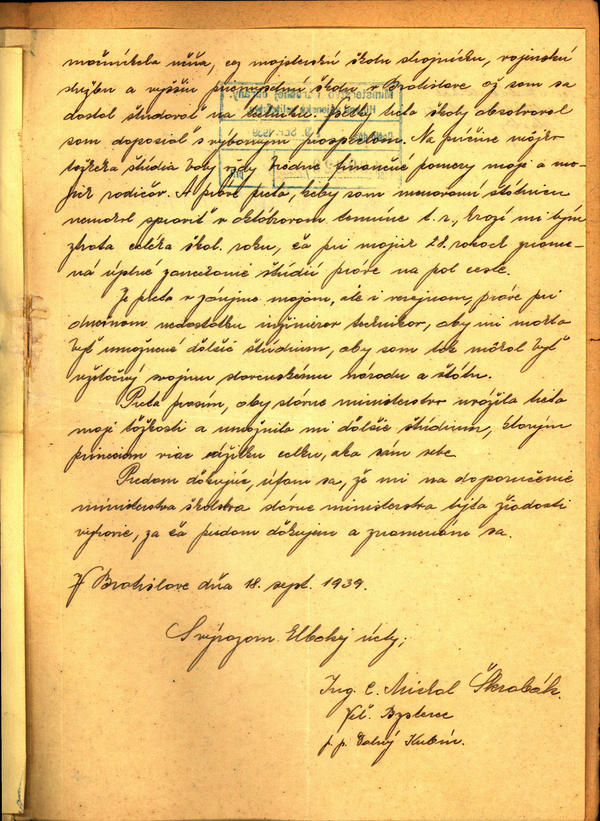 učňa, cez majsterskú školu strojnícku, vojenskú
službu a vyššiu priemyselnú školu v Bratislave až som sa
dostal študovať na techniku. Všetky tieto školy absolvoval
som doposiaľ s výborným prospechom. Na príčine môjho
ťažkého štúdia boly vždy biedne finančné pomery moje a mo-
jich rodičov. A práve preto, keby som menovanú štátnicu
nemohol spraviť v októbrovom termíne t. r., hrozí mi tým
ztráta celého škol. roku, čo pri mojich 28. rokoch zname-
ná úplné zanechanie štúdií práve na pol ceste.
Je preto v záujme mojom, ale i verejnom, práve pri
dnešnom nedostatku inžinierov technikov, aby mi mohlo
byť umožnené ďalšie štúdium, aby som tak mohol byť
užitočný svojmu slovenskému národu a štátu.
Preto prosím, aby slávne ministerstvo uvážilo tieto
moje ťažkosti a umožnilo mi ďalšie štúdium, ktorým
prinesiem viac úžitku celku, ako sám sebe.
Predom ďakujúc, úfam sa, že mi na doporučenie
ministerstva školstva slávne ministerstvo tejto žiadosti
vyhovie, za čo predom ďakujem a znamenám sa.
V Bratislave dňa 18. sept. 1939.
S výrazom hlbokej úcty;
Ing. C. Michal Škrabák.
Veľ. Bysterec
p. p. Dolný Kubín.